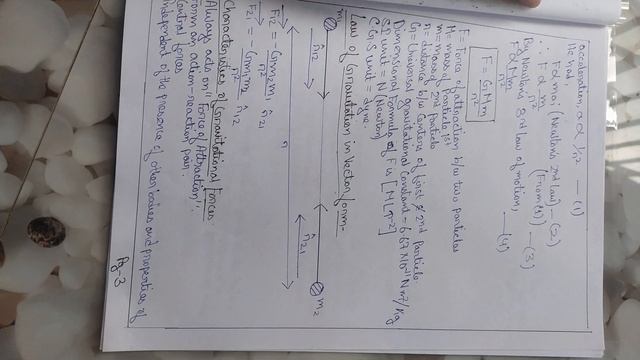 acceleration, a ∝ 1/r² — (1)
We had,
F ∝ ma, (Newton's 2nd Law) — (2)
∴ F ∝ m/r² (From (1)) — (3)
By Newton's 3rd Law of motion,
F ∝ Mm/r² — (4)
F = GMm/r²
F = Force of attraction b/w two particles
M = mass of particle 1st
m = mass of 2nd Particle
r = distance b/w centers of first & 2nd Particle.
G = Universal gravitational Constant = 6.67 × 10⁻¹¹ Nm²/Kg
Dimensional Formula of F is [MLT⁻²]
S.I unit = N (Newton)
C.G.S unit = dyne
Law of Gravitation in Vector form-
m₁ r̂₁₂ r r̂₂₁ m₂
F₁₂ = -Gm₁m₂/r² r̂₂₁
F₂₁ = -Gm₁m₂/r² r̂₁₂
Characteristics of Gravitational forces:
Always acts on "Force of Attraction".
Form an action-reaction pair.
Central forces
Independent of the presence of other bodies and properties of
Pg-3